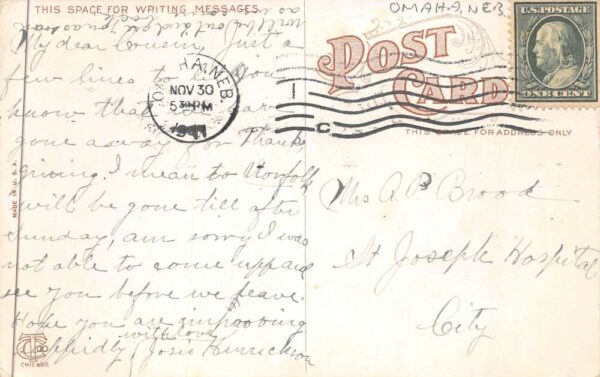 THIS SPACE FOR WRITING MESSAGES
My dear Cousin, Just a
few lines to let you
know that we are
gone away for thanks
giving. I mean to Norfolk
will be gone till after
Sunday, am sorry I was
not able to come up and
see you before we leave.
Hope you are improving
rappidly
with love
Josie Henrickson
will be out and
as
back
OMAHA, NEB.
HA, NEB.
NOV 30
530 PM
POST
CARD
THIS SPACE FOR ADDRESS ONLY
U.S. POSTAGE
ONE CENT
Mrs A. P. Brood
St Joseph Hospital
City
MADE IN U.S.A.
CT
CHICAGO